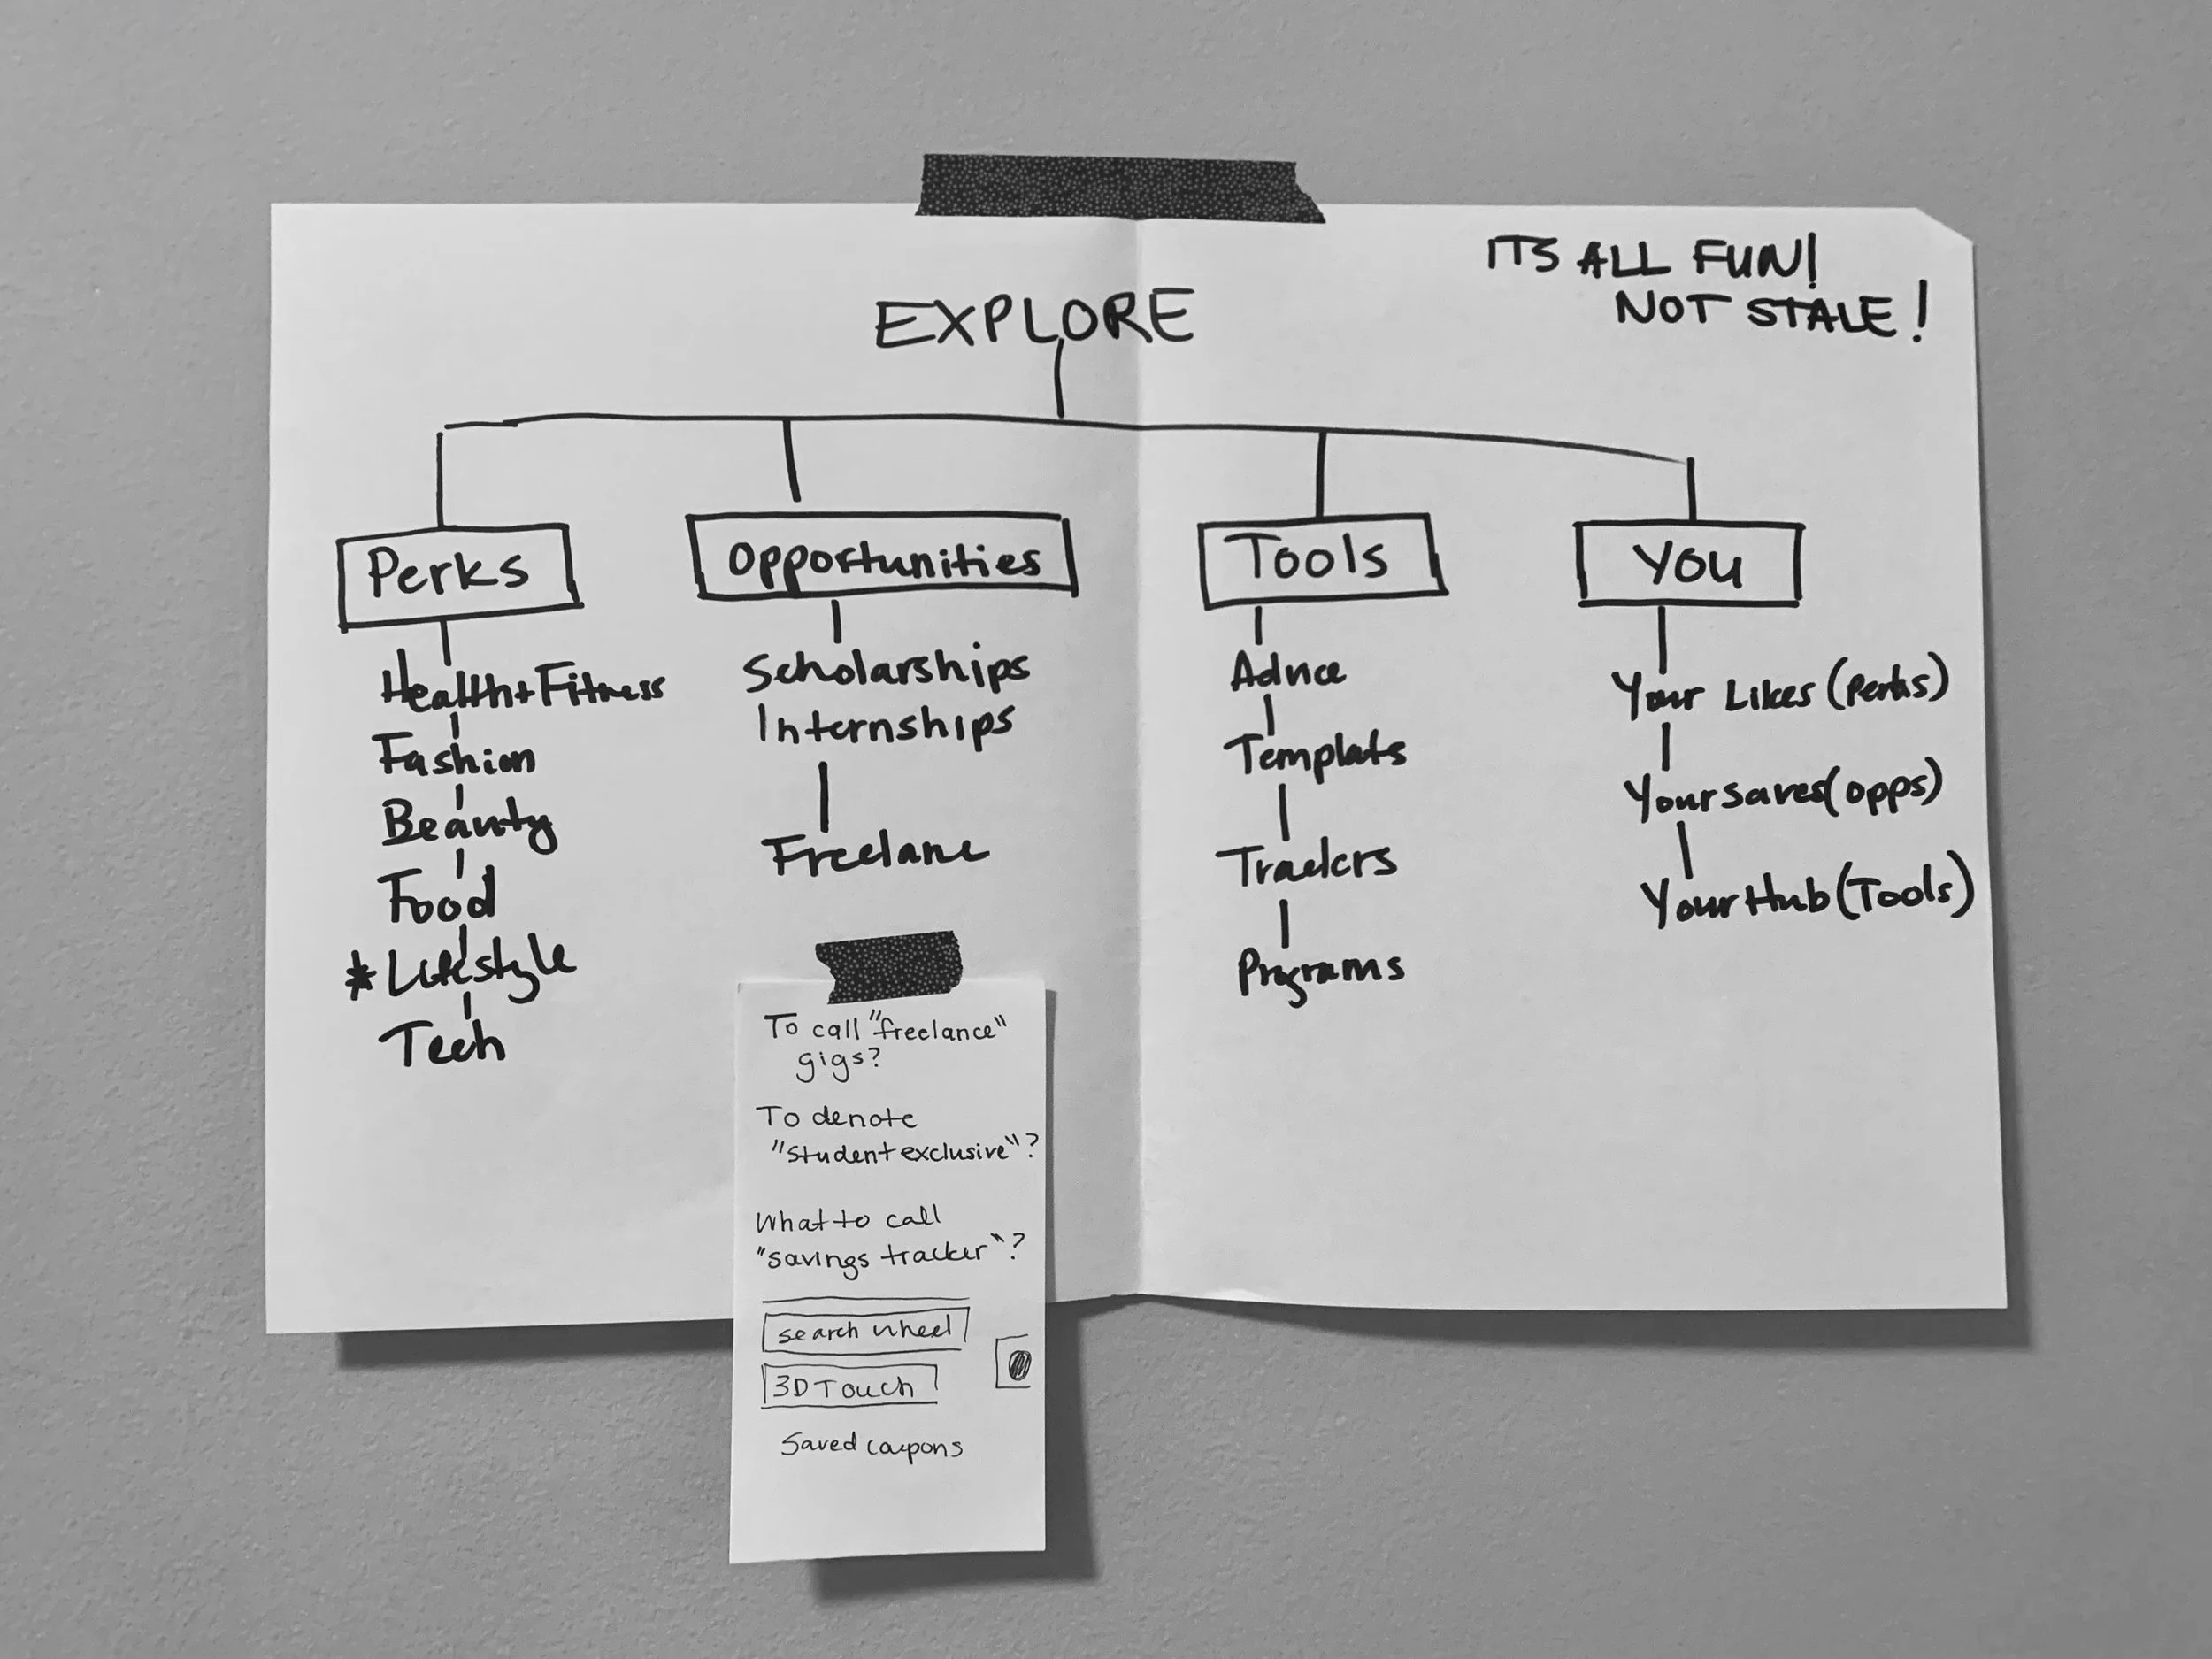 ITS ALL FUN!
NOT STALE!
EXPLORE
Perks
Health+Fitness
Fashion
Beauty
Food
*Lifestyle
Tech
Opportunities
Scholarships
Internships
Freelanc
Tools
Advice
Templats
Programs
YOU
Your Likes (Perks)
Your saves (opps)
Your Hub (Tools)
To call "freelance"
gigs?
To denote
"student exclusive"?
What to call
"savings tracker"?
search wheel
3D Touch
Saved coupons